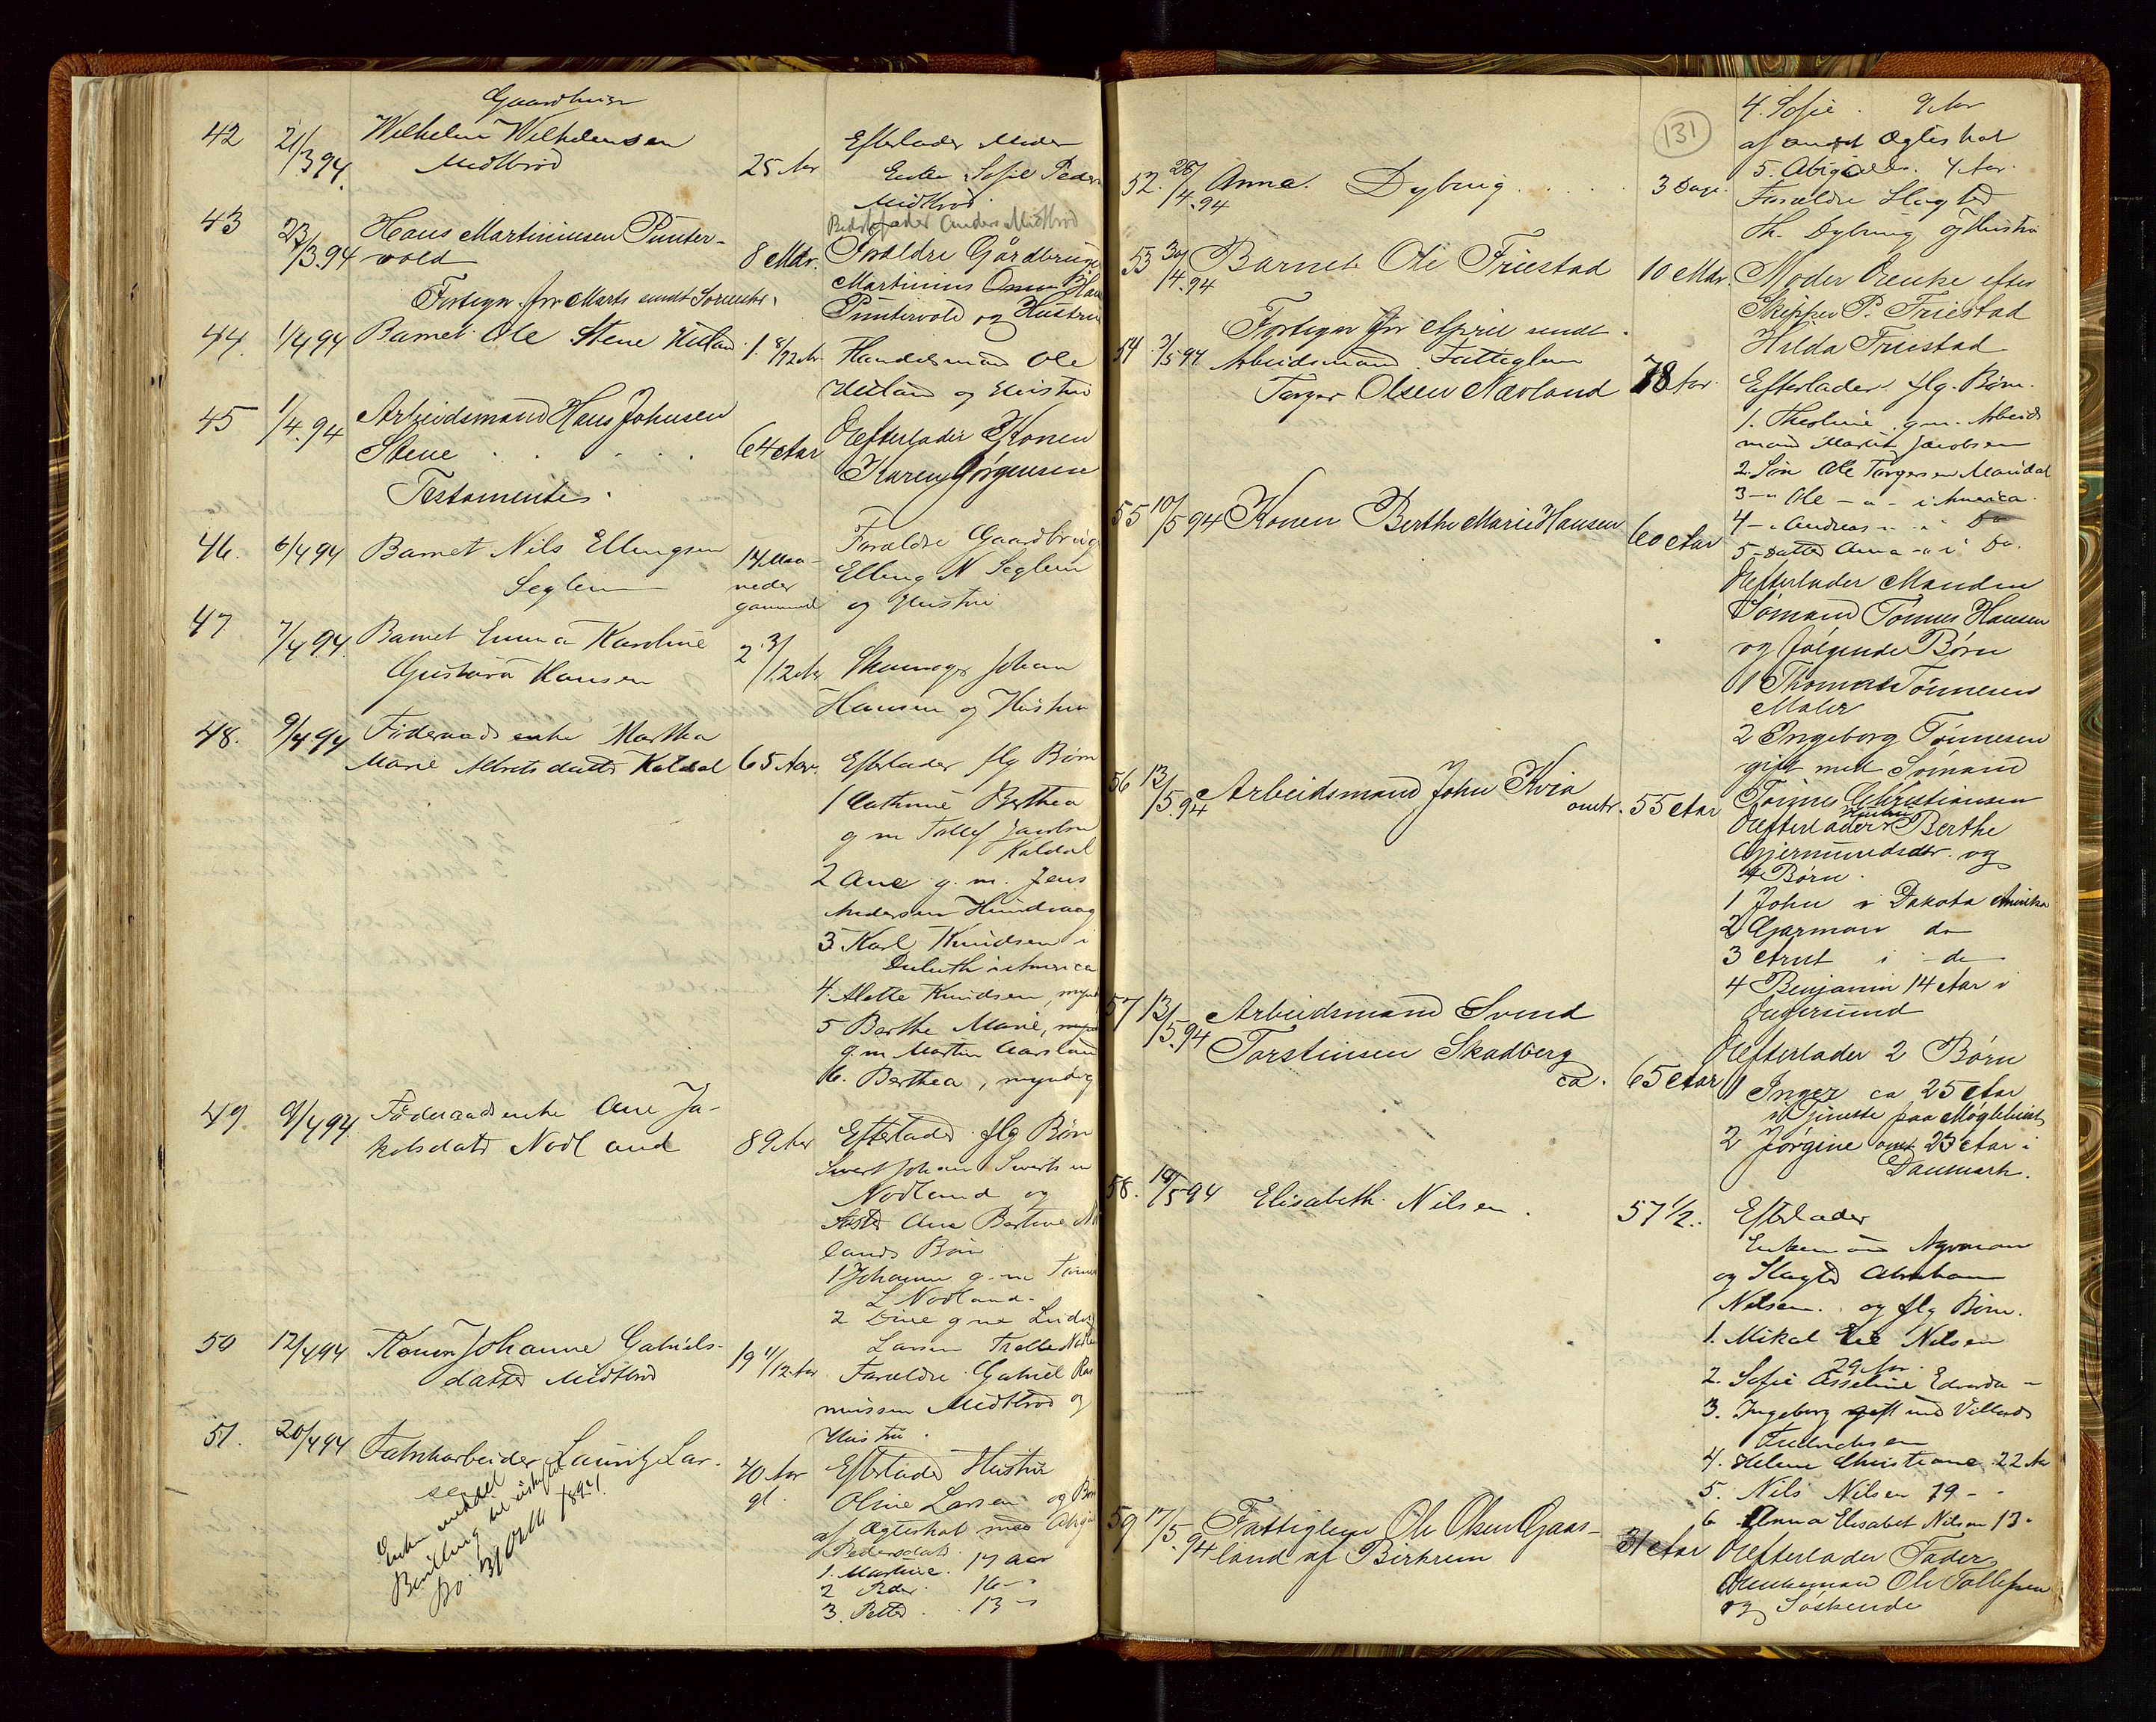 Gaardbruger
42 21/3 94. Wilhelm Wilhelmsen
Midtbrød 25 Aar Efterlader Moder
Enke Sofie Peders
Midtbrød.
Bedstefader Anders Midtbrød
43 23/3.94 Hans Martiniusen Punter-
vold 8 Mdr. Forældre Gårdbruger
Martinius Hans
Puntervold og Hustru
Fortegn. for Marts sendt Sorenskr.
44. 1/4 94 Barnet Ole Stene Hetland 1 8/12 Aar Handelsmand Ole
Hetland og Hustru
45 1/4.94 Arbeidsmand Hans Johnsen
Stene . . . . . 64 Aar Efterlader Konen
Karen Jørgensen
Testamentes.
46. 6/4 94 Barnet Nils Ellingsen
Seglem 14 Maa-
neder
gammel Forældre Gaardbrug
Elling N Seglem
og Hustru
47 7/4 94. Barnet Emma Karoline
Gustava Hansen 2 3/12 Aar Skomager Johan
Hansen og Hustru
48. 9/4.94 Føderaadsenke Martha
Marie Albretsdatter Kaldal 65 Aar. Efterlader flg Børn
1 Cathrine Berthea
g m Tollef Jacobsen
Kaldal
2 Ane g. m. Jens
Andersen Hundvaag
3 Karl Knudsen i
Duluth i America
4. Alette Knudsen, mynd
5 Berthe Marie,
g. m Martin Aarsland
6. Berthea, myndig
49. 9/4 94. Føderaadsenke Ane Ja-
kobsdatr Nodland 89 Aar Efterlader flg Børn
Sivert Johan Sivertsen
Nodland og
Ane Bertine
lands Børn
1 Johanne g. m Tønnes
L Nodland.
2 g m Ludvig
Larsen
50 12/4 94 Konen Johanne Gabriels-
datter Midtbrød 19 11/12 Aar Forældre Gabriel Ras
mussen Midtbrød og
Hustru.
51. 20/4 94 Fabrikarbeider Lauritz Lar-
sen 40 Aar
gl. Efterlader Hustru
Oline Larsen og Børn
af Ægteskab med Abigael
Pedersdatr.
1. Martine. 17 Aar
2 Peder. 16 - "
3. Petter . 13 - "
Enken meddelt
Bevilling til uskiftet
Bo. 31 Octb 1894.
131
4. Sofie . 9 Aar
af andet Ægteskab
5. Abigael. 4 Aar.
52. 28/4.94 Anna. Dybing . . . . 3 Dage. Forældre Slagter
Th. Dybing og Hustru
53 30/4.94 Barnet Ole Friestad 10 Mdr. Moder Enke efter
Skipper P. Friestad
Hilda Friestad
Fortegn for April sendt.
54 2/5 94. Arbeidsmand Fattiglem
Torger Olsen Nævland 78 Aar. Efterlader flg. Børn.
1. Theoline g. m. Arbeids
mand Martin Jacobsen
2. Søn Ole Torgersen Mandal
3 -" Ole - " - i America.
4 -" Andreas - " - i Do
5 - Datter Anna - " i Do.
55 10/5 94 Konen Berthe Marie Hansen 60 Aar Efterlader Manden
Sømand Tønnes Hansen
og følgende Børn
1 Thomas Tønnesen
Maler
2 Ingeborg Tønnesen
gift med Sømand
Tønnes Christiansen
56 13/5.94 Arbeidsmand John Kvia
omtr. 55 Aar Efterlader Hustru Berthe
Gjermundsdtr. og
4 Børn.
1 John i Dakota Amerika
2 Garman do
3 Arnt i do
4 Benjamin 14 Aar i
Egersund
57 13/5.94 Arbeidsmand Svend
Torstensen Skadberg
ca. 65 Aar Efterlader 2 Børn
1 Inger ca 25 Aar
i Tjeneste paa Møgleleit
2 Jørgine omt 23 Aar i
Danmark.
58. 14/5 94 Elisabeth Nilsen . 57 1/2. Efterlader
Enkemand
og Slagter Abraham
Nilsen. og flg Børn.
1. Mikal Nilsen
29 Aar.
2. Sofie Asseline Edvarda -
3. Ingeborg gift med Villads
4. Helene Christiane 22 Aar
5. Nils Nilsen 19 - "
6 Anna Elisabet Nilsen 13 "
59 17/5 94 Fattiglem Ole Olsen Gaas-
land af Birkrem 31 Aar Efterlader Fader,
Enkemand Ole Tollefsen
og Søskende